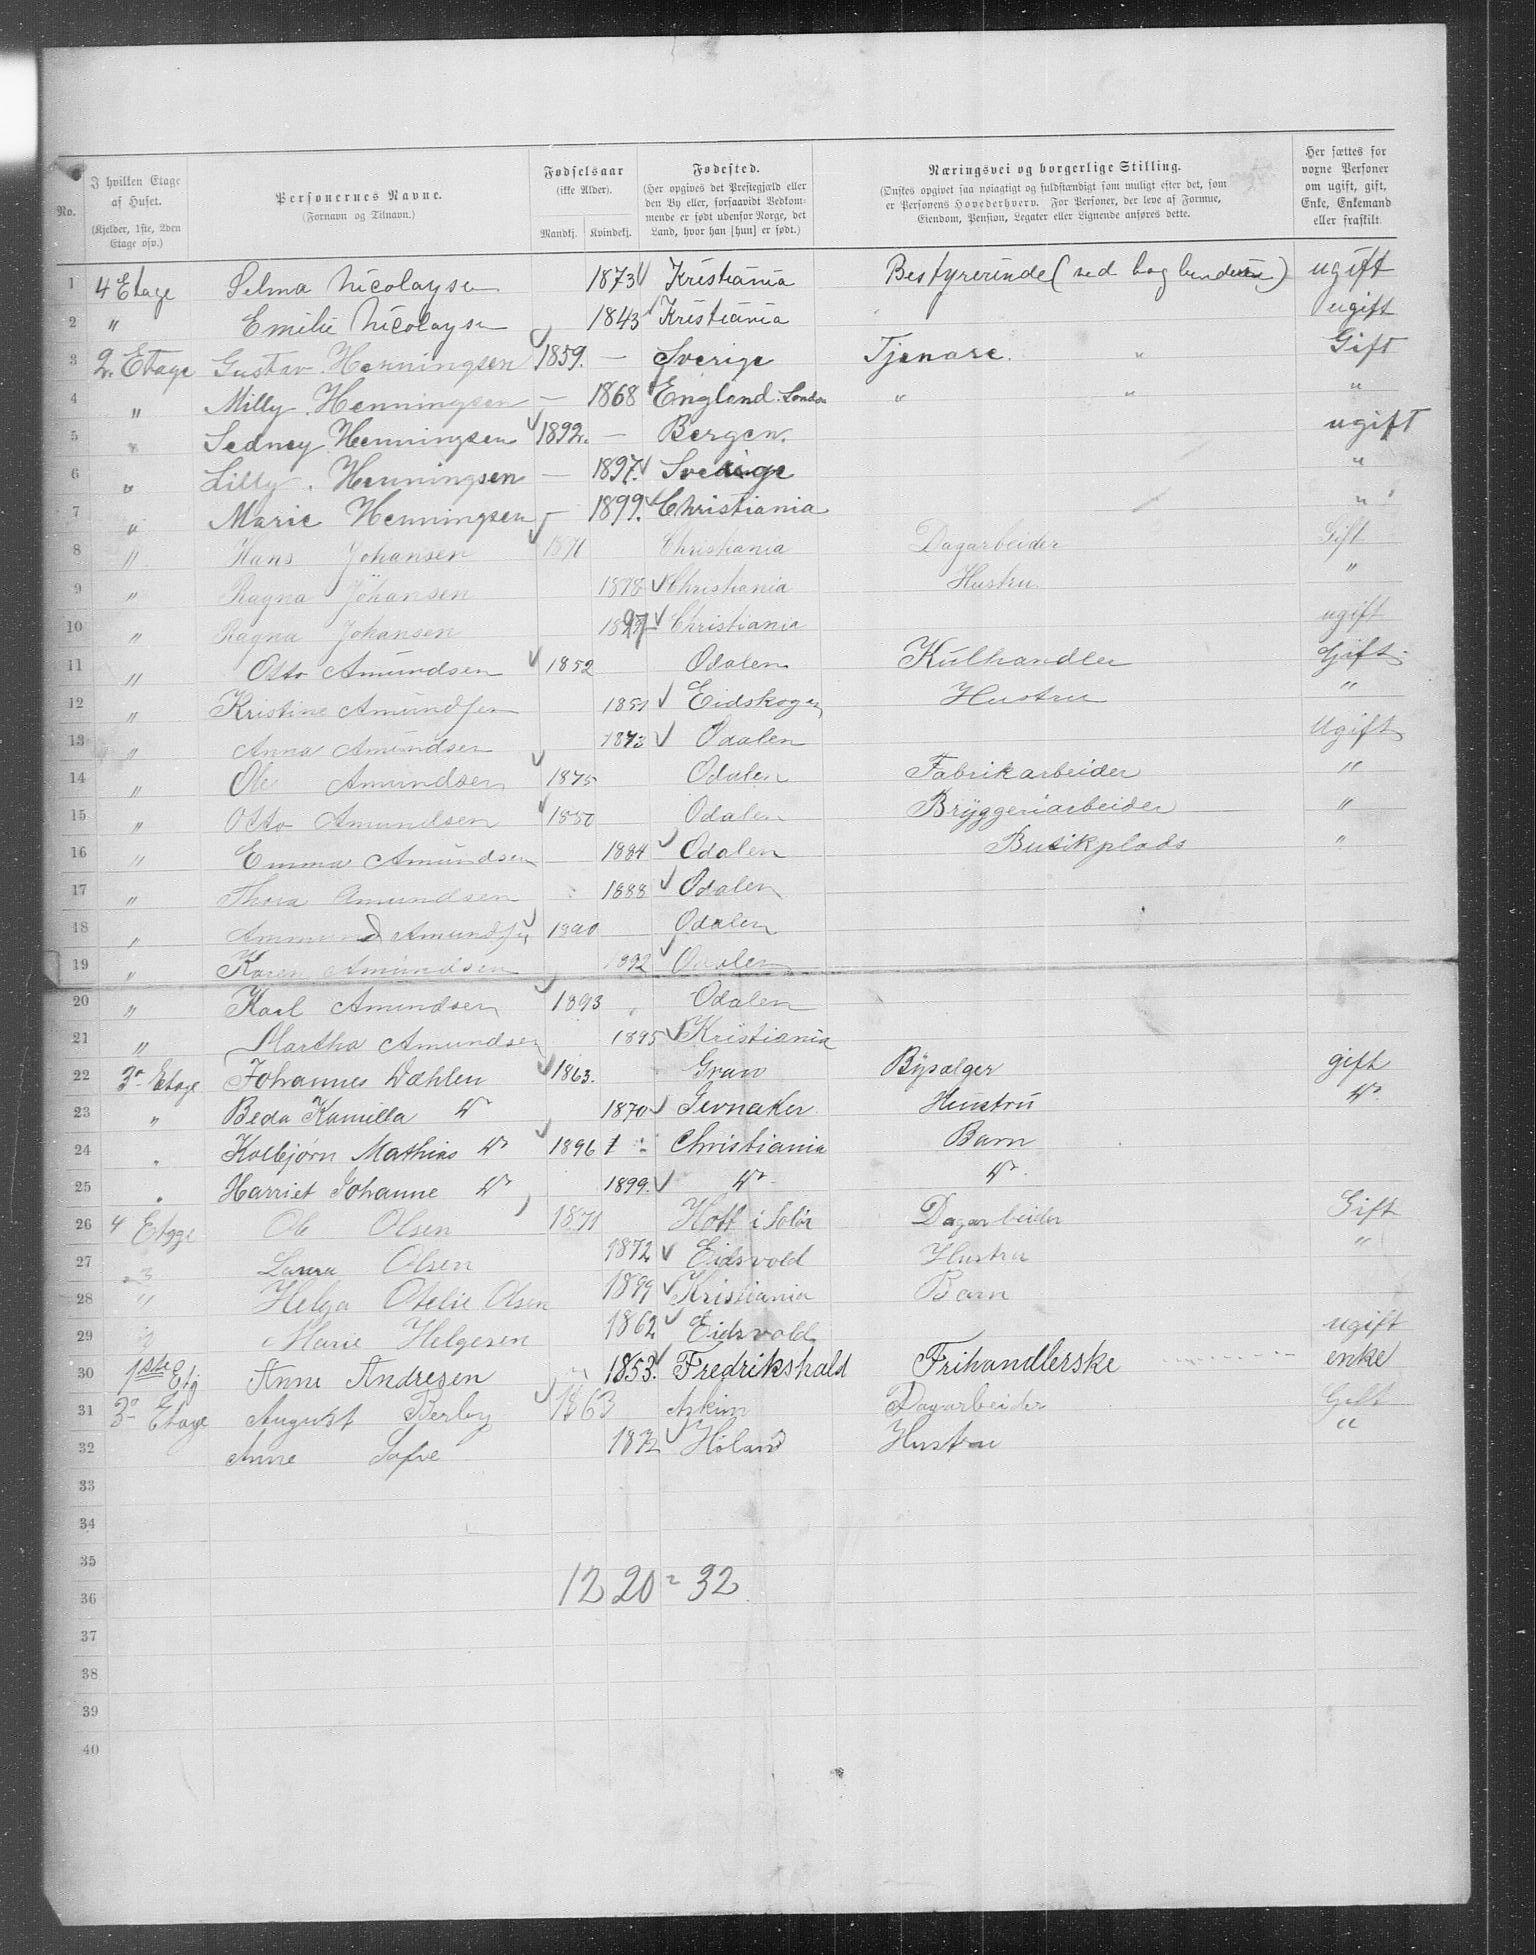 No.
I hvilken Etage af Huset. (Kjelder, 1ste, 2den Etage osv.)
Personernes Navne. (Fornavn og Tilnavn.)
Fødselsaar (ikke Alder). Mandkj. Kvindekj.
Fødested. (Her opgives det Prestegjæld eller den By eller, forsaavidt Vedkommende er født udenfor Norge, det Land, hvor han [hun] er født.)
Næringsvei og borgerlige Stilling. (Ønskes opgivet saa nøiagtigt og fuldstændigt som muligt efter det, som er Personens Hovederhverv. For Personer, der leve af Formue, Eiendom, Pension, Legater eller Lignende anføres dette.
Her sættes for voxne Personer om ugift, gift, Enke, Enkemand eller fraskilt
1 4 Etage Selma Nicolaysen 1873 Kristiania Bestyrerinde (ved bog ) ugift
2 " Emilie Nicolaysen 1843 Kristiania ugift
3 2. Etage Gustav Henningsen 1859. — Sverige Tjenare. " Gift
4 " Milly Henningsen — 1868 England. London " " "
5 " Sedney Henningsen 1892. — Bergen. ugift
6 " Lilly. Henningsen — 1897. Sverige "
7 " Marie Henningsen — 1899. Christiania "
8 " Hans Johansen 1871 Christiania Dagarbeider Gift
9 " Ragna Johansen 1878 Christiania Hustru "
10 " Ragna Johansen 1897 Christiania ugift
11 " Otto Amundsen 1852 Odalen Kulhandler Gift
12 " Kristine Amundsen 1851 Eidskogen Hustru "
13 " Anna Amundsen 1873 Odalen Ugift
14 " Ole Amundsen 1875 Odalen Fabrikarbeider "
15 " Otto Amundsen 1880 Odalen Bryggeriarbeider "
16 " Emma Amundsen — 1884 Odalen Butikplads "
17 " Thora Amundsen 1888 Odalen
18 " Ammund Amundsen 1890 Odalen
19 " Karen Amundsen 1892 Odalen
20 " Karl Amundsen 1893 " Odalen
21 " Martha Amundsen 1895 Kristiania
22 3. Etage Johannes Dæhlen 1863. Gran Bypalger gift
23 " Beda Kamilla Do 1870 Jevnaker Hustru Do
24 " Kolbjørn Mathias Do 1896 Christiania Barn
25 " Harriet Johanne Do 1899. Do Do
26 4 Etage Ole Olsen 1871 Hoff i Solør Dagarbeider Gift
27 " Laura Olsen 1872 Eidsvold Hustru "
28 " Helga Otelie Olsen 1899 Kristiania Barn
29 " Marie Helgesen 1862 Eidsvold ugift
30 1ste Etg Anne Andresen 1853. Fredrikshald Frihandlerske enke
31 3. Etage August Berby 1863 Askim Dagarbeider Gift
32 Anne Sofie 1872 Høland Hustru "
33
34
35
36 12 20 = 32
37
38
39
40